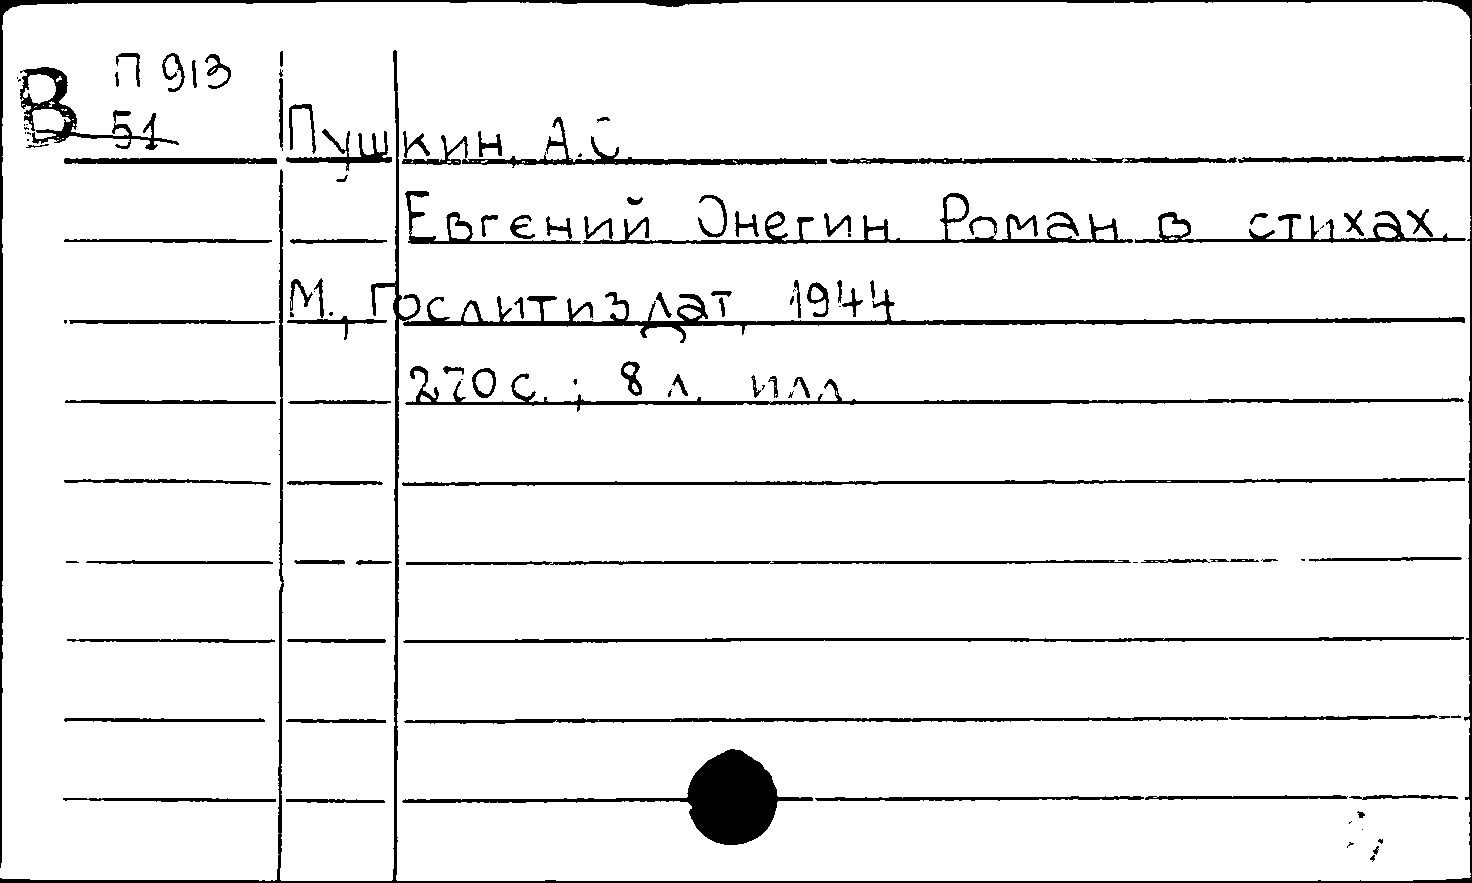 В П 913
51
Пушкин, А.С.
Евгений Онегин. Роман в стихах.
М., Гослитиздат, 1944
270 с. ; 8 л. илл.